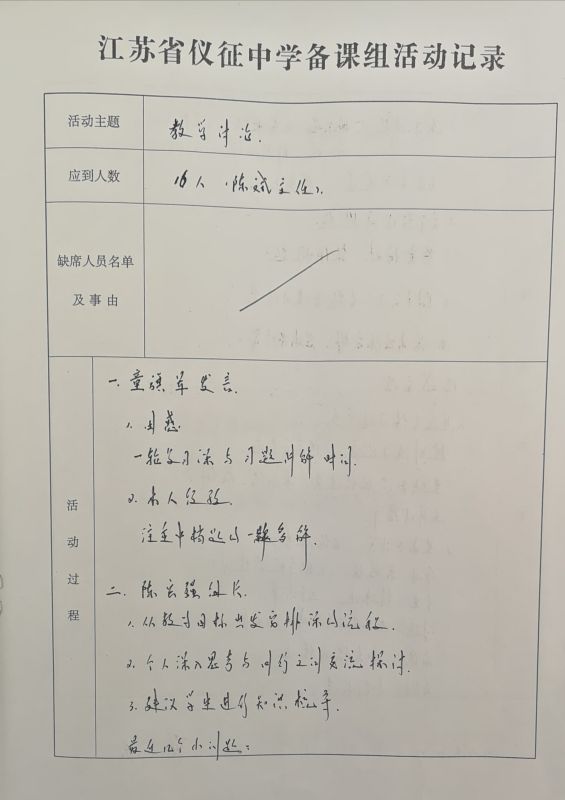 江苏省仪征中学备课组活动记录
活动主题
教学讨论.
应到人数
16人 (陈斌主任).
缺席人员名单
及事由
活动过程
一. 童旗军发言.
1. 困惑
一轮复习课与习题讲解时间.
2. 本人经验.
注重中档题的一题多解.
二. 陈宏强处长.
1. 从教学目标出发安排课的流程.
2. 个人深入思考与同行之间交流探讨.
3. 建议学生进行知识梳
最近几个小问题: